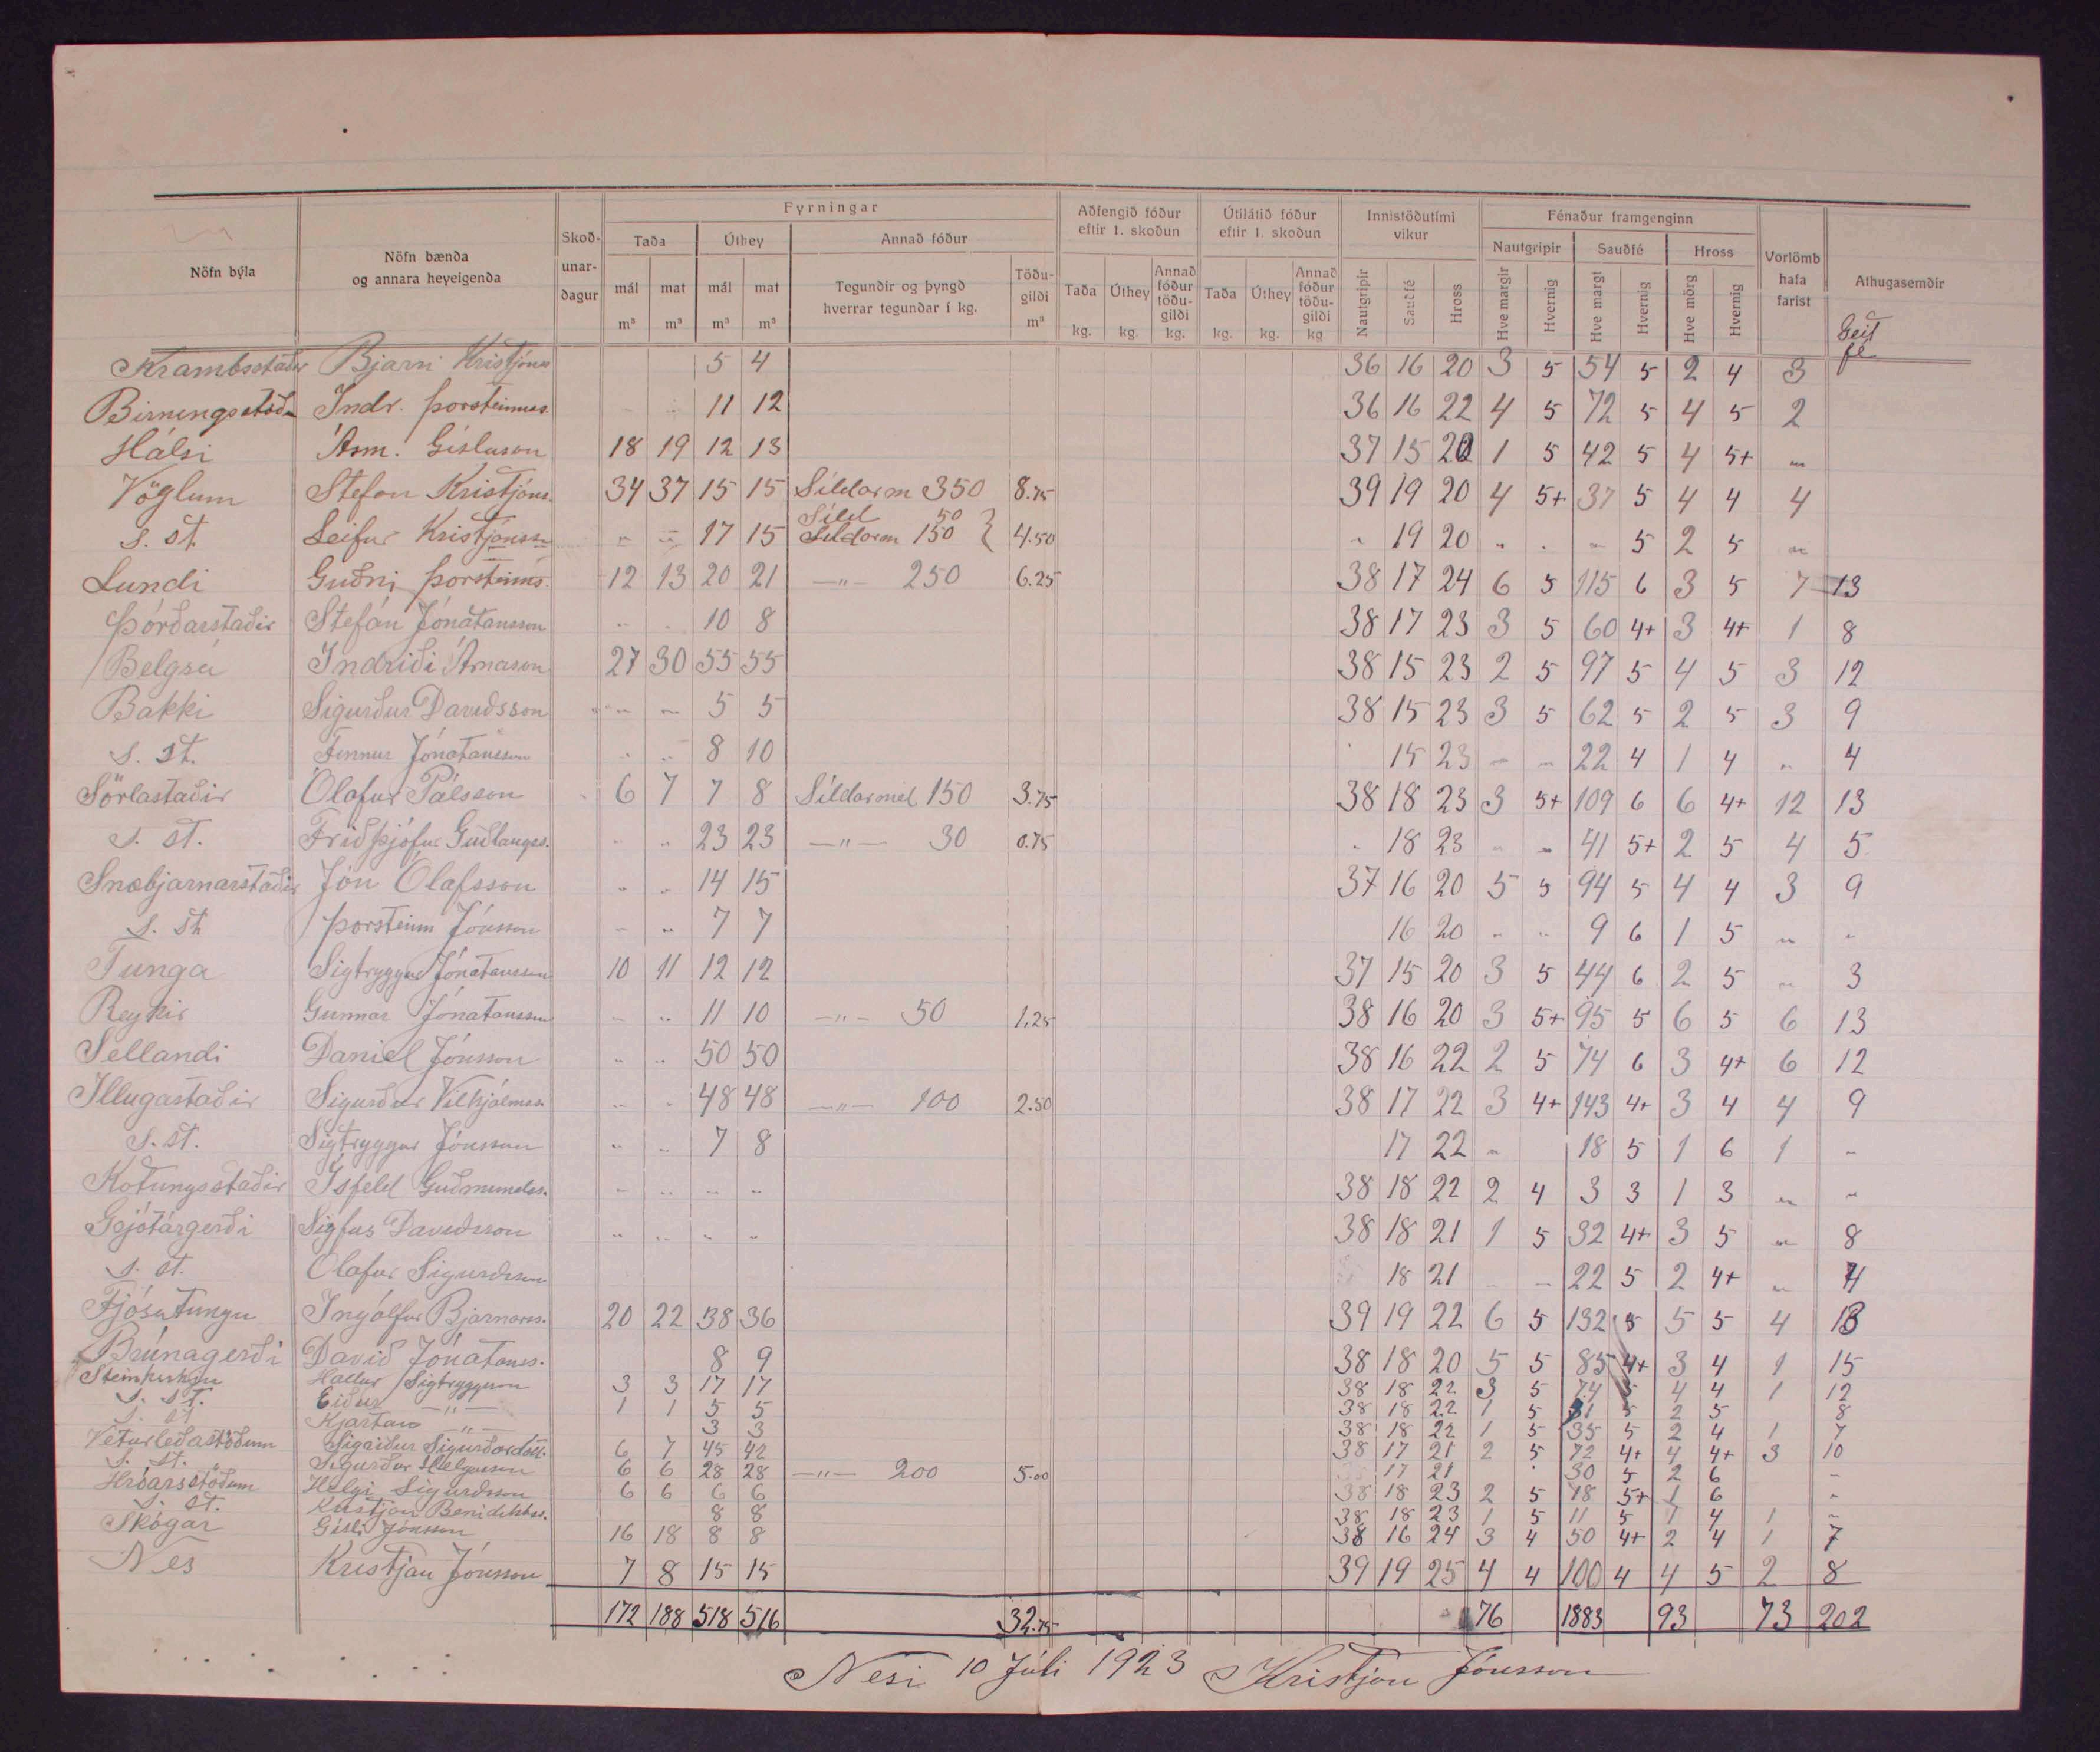 Nöfn býla | Nöfn bænda og annara heyeigenda | Skoðunardagur | Fyrningar | Aðfengið fóður eftir 1. skoðun | Útilátið fóður eftir 1. skoðun | Innistöðutími vikur | Fénaður framgenginn | Vorlömb hafa farist | Athugasemdir
Taða | Úthey | Annað fóður | Nautgripir | Sauðfé | Hross
mál m³ | mat m³ | mál m³ | mat m³ | Tegundir og þyngd hverrar tegundar í kg. | Töðugildi m³ | Taða kg. | Úthey kg. | Annað fóður töðugildi kg. | Taða kg. | Úthey kg. | Annað fóður töðugildi kg | Nautgripir | Sauðfé | Hross | Hve margir | Hvernig | Hve margt | Hvernig | Hve mörg | Hvernig | Geitfé
Bjarni Kristjáns | 5 | 4 | 36 | 16 | 20 | 3 | 5 | 54 | 5 | 2 | 4 | 3
Indr. Þorsteinss. | 11 | 12 | 36 | 16 | 22 | 4 | 5 | 72 | 5 | 4 | 5 | 2
Hálsi | Ásm. Gíslason | 18 | 19 | 12 | 13 | 37 | 15 | 20 | 1 | 5 | 42 | 5 | 4 | 5+ | "
Vöglum | Stefan Kristjáns. | 34 | 37 | 15 | 15 | Síldarm 350 | 8.75 | 39 | 19 | 20 | 4 | 5+ | 37 | 5 | 4 | 4 | 4
s. st. | Leifur Kristjánss | " | " | 17 | 15 | Síld 50 Síldarm 150 } | 4.50 | " | 19 | 20 | " | " | " | 5 | 2 | 5 | "
Lundi | Guðni Þorsteins. | 12 | 13 | 20 | 21 | —"— 250 | 6.25 | 38 | 17 | 24 | 6 | 5 | 115 | 6 | 3 | 5 | 7 | 13
Þórðarstaðir | Stefán Jónatansson | " | " | 10 | 8 | 38 | 17 | 23 | 3 | 5 | 60 | 4+ | 3 | 4+ | 1 | 8
Belgsá | Indriði Árnason | 27 | 30 | 55 | 55 | 38 | 15 | 23 | 2 | 5 | 97 | 5 | 4 | 5 | 3 | 12
Bakki | Sigurður Davíðsson | " | " | 5 | 5 | 38 | 15 | 23 | 3 | 5 | 62 | 5 | 2 | 5 | 3 | 9
s. st. | Finnur Jónatansson | " | " | 8 | 10 | " | 15 | 23 | " | " | 22 | 4 | 1 | 4 | " | 4
Sörlastaðir | Ólafur Pálsson | 6 | 7 | 7 | 8 | Síldarmél 150 | 3.75 | 38 | 18 | 23 | 3 | 5+ | 109 | 6 | 6 | 4+ | 12 | 13
s. st. | Friðþjófur Guðlaugss. | " | " | 23 | 23 | —"— 30 | 0.75 | " | 18 | 23 | " | " | 41 | 5+ | 2 | 5 | 4 | 5
Snæbjarnarstaðir | Jón Ólafsson | " | " | 14 | 15 | 37 | 16 | 20 | 5 | 5 | 94 | 5 | 4 | 4 | 3 | 9
s. st | Þorsteinn Jónsson | " | " | 7 | 7 | 16 | 20 | " | " | 9 | 6 | 1 | 5 | " | "
Tunga | Sigtryggur Jónatansson | 10 | 11 | 12 | 12 | 37 | 15 | 20 | 3 | 5 | 44 | 6 | 2 | 5 | " | 3
Reykir | Gunnar Jónatansson | " | " | 11 | 10 | —"— 50 | 1,25 | 38 | 16 | 20 | 3 | 5+ | 95 | 5 | 6 | 5 | 6 | 13
Sellandi | Daníel Jónsson | " | " | 50 | 50 | 38 | 16 | 22 | 2 | 5 | 74 | 6 | 3 | 4+ | 6 | 12
Illugastaðir | Sigurður Vilhjálmss. | " | " | 48 | 48 | —"— 100 | 2.50 | 38 | 17 | 22 | 3 | 4+ | 143 | 4+ | 3 | 4 | 4 | 9
s. st. | Sigtryggur Jónsson | " | " | 7 | 8 | 17 | 22 | " | 18 | 5 | 1 | 6 | 1 | "
Kotungsstaðir | Ísfeld Guðmundss. | " | " | " | " | 38 | 18 | 22 | 2 | 4 | 3 | 3 | 1 | 3 | " | "
Grjótárgerði | Sigfús Davíðsson | " | " | " | " | 38 | 18 | 21 | 1 | 5 | 32 | 4+ | 3 | 5 | " | 8
s. st. | Ólafur Sigurðsson | 18 | 21 | " | " | 22 | 5 | 2 | 4+ | " | 4
Fjósatungu | Ingólfur Bjarnars. | 20 | 22 | 38 | 36 | 39 | 19 | 22 | 6 | 5 | 132 | 5 | 5 | 5 | 4 | 13
Brúnagerði | Davíð Jónatanss. | 8 | 9 | 38 | 18 | 20 | 5 | 5 | 85 | 4+ | 3 | 4 | 1 | 15
Steinkirkju | Hallur Sigtryggson | 3 | 3 | 17 | 17 | 38 | 18 | 22 | 3 | 5 | 74 | 5 | 4 | 4 | 1 | 12
s. st. | Eiður —"— | 1 | 1 | 5 | 5 | 38 | 18 | 22 | 1 | 5 | 5 | 2 | 5 | 8
s. st | Kjartan —"— | 3 | 3 | 38 | 18 | 22 | 1 | 5 | 35 | 5 | 2 | 4 | 1 | 7
Veturliðastöðum | Sigríður Sigurðardótt. | 6 | 7 | 45 | 42 | 38 | 17 | 21 | 2 | 5 | 72 | 4+ | 4 | 4+ | 3 | 10
s. st. | Sigurður Helgason | 6 | 6 | 28 | 28 | —"— 200 | 5.00 | 17 | 21 | " | 30 | 5 | 2 | 6 | -
Hróarsstöðum | Helgi Sigurðsson | 6 | 6 | 6 | 6 | 38 | 18 | 23 | 2 | 5 | 78 | 5+ | 1 | 6 | "
s. st. | Kristjan Benidiktss. | 8 | 8 | 38 | 18 | 23 | 1 | 5 | 11 | 5 | 1 | 4 | 1 | "
Skógar | Gísli Jónsson | 16 | 18 | 8 | 8 | 38 | 16 | 24 | 3 | 4 | 50 | 4+ | 2 | 4 | 1 | 7
Nes | Kristján Jónsson | 7 | 8 | 15 | 15 | 39 | 19 | 25 | 4 | 4 | 100 | 4 | 4 | 5 | 2 | 8
172 | 188 | 518 | 516 | 32.75 | 76 | 1883 | 93 | 73 | 202
Nesi 10 Júli 1923 Kristján Jónsson